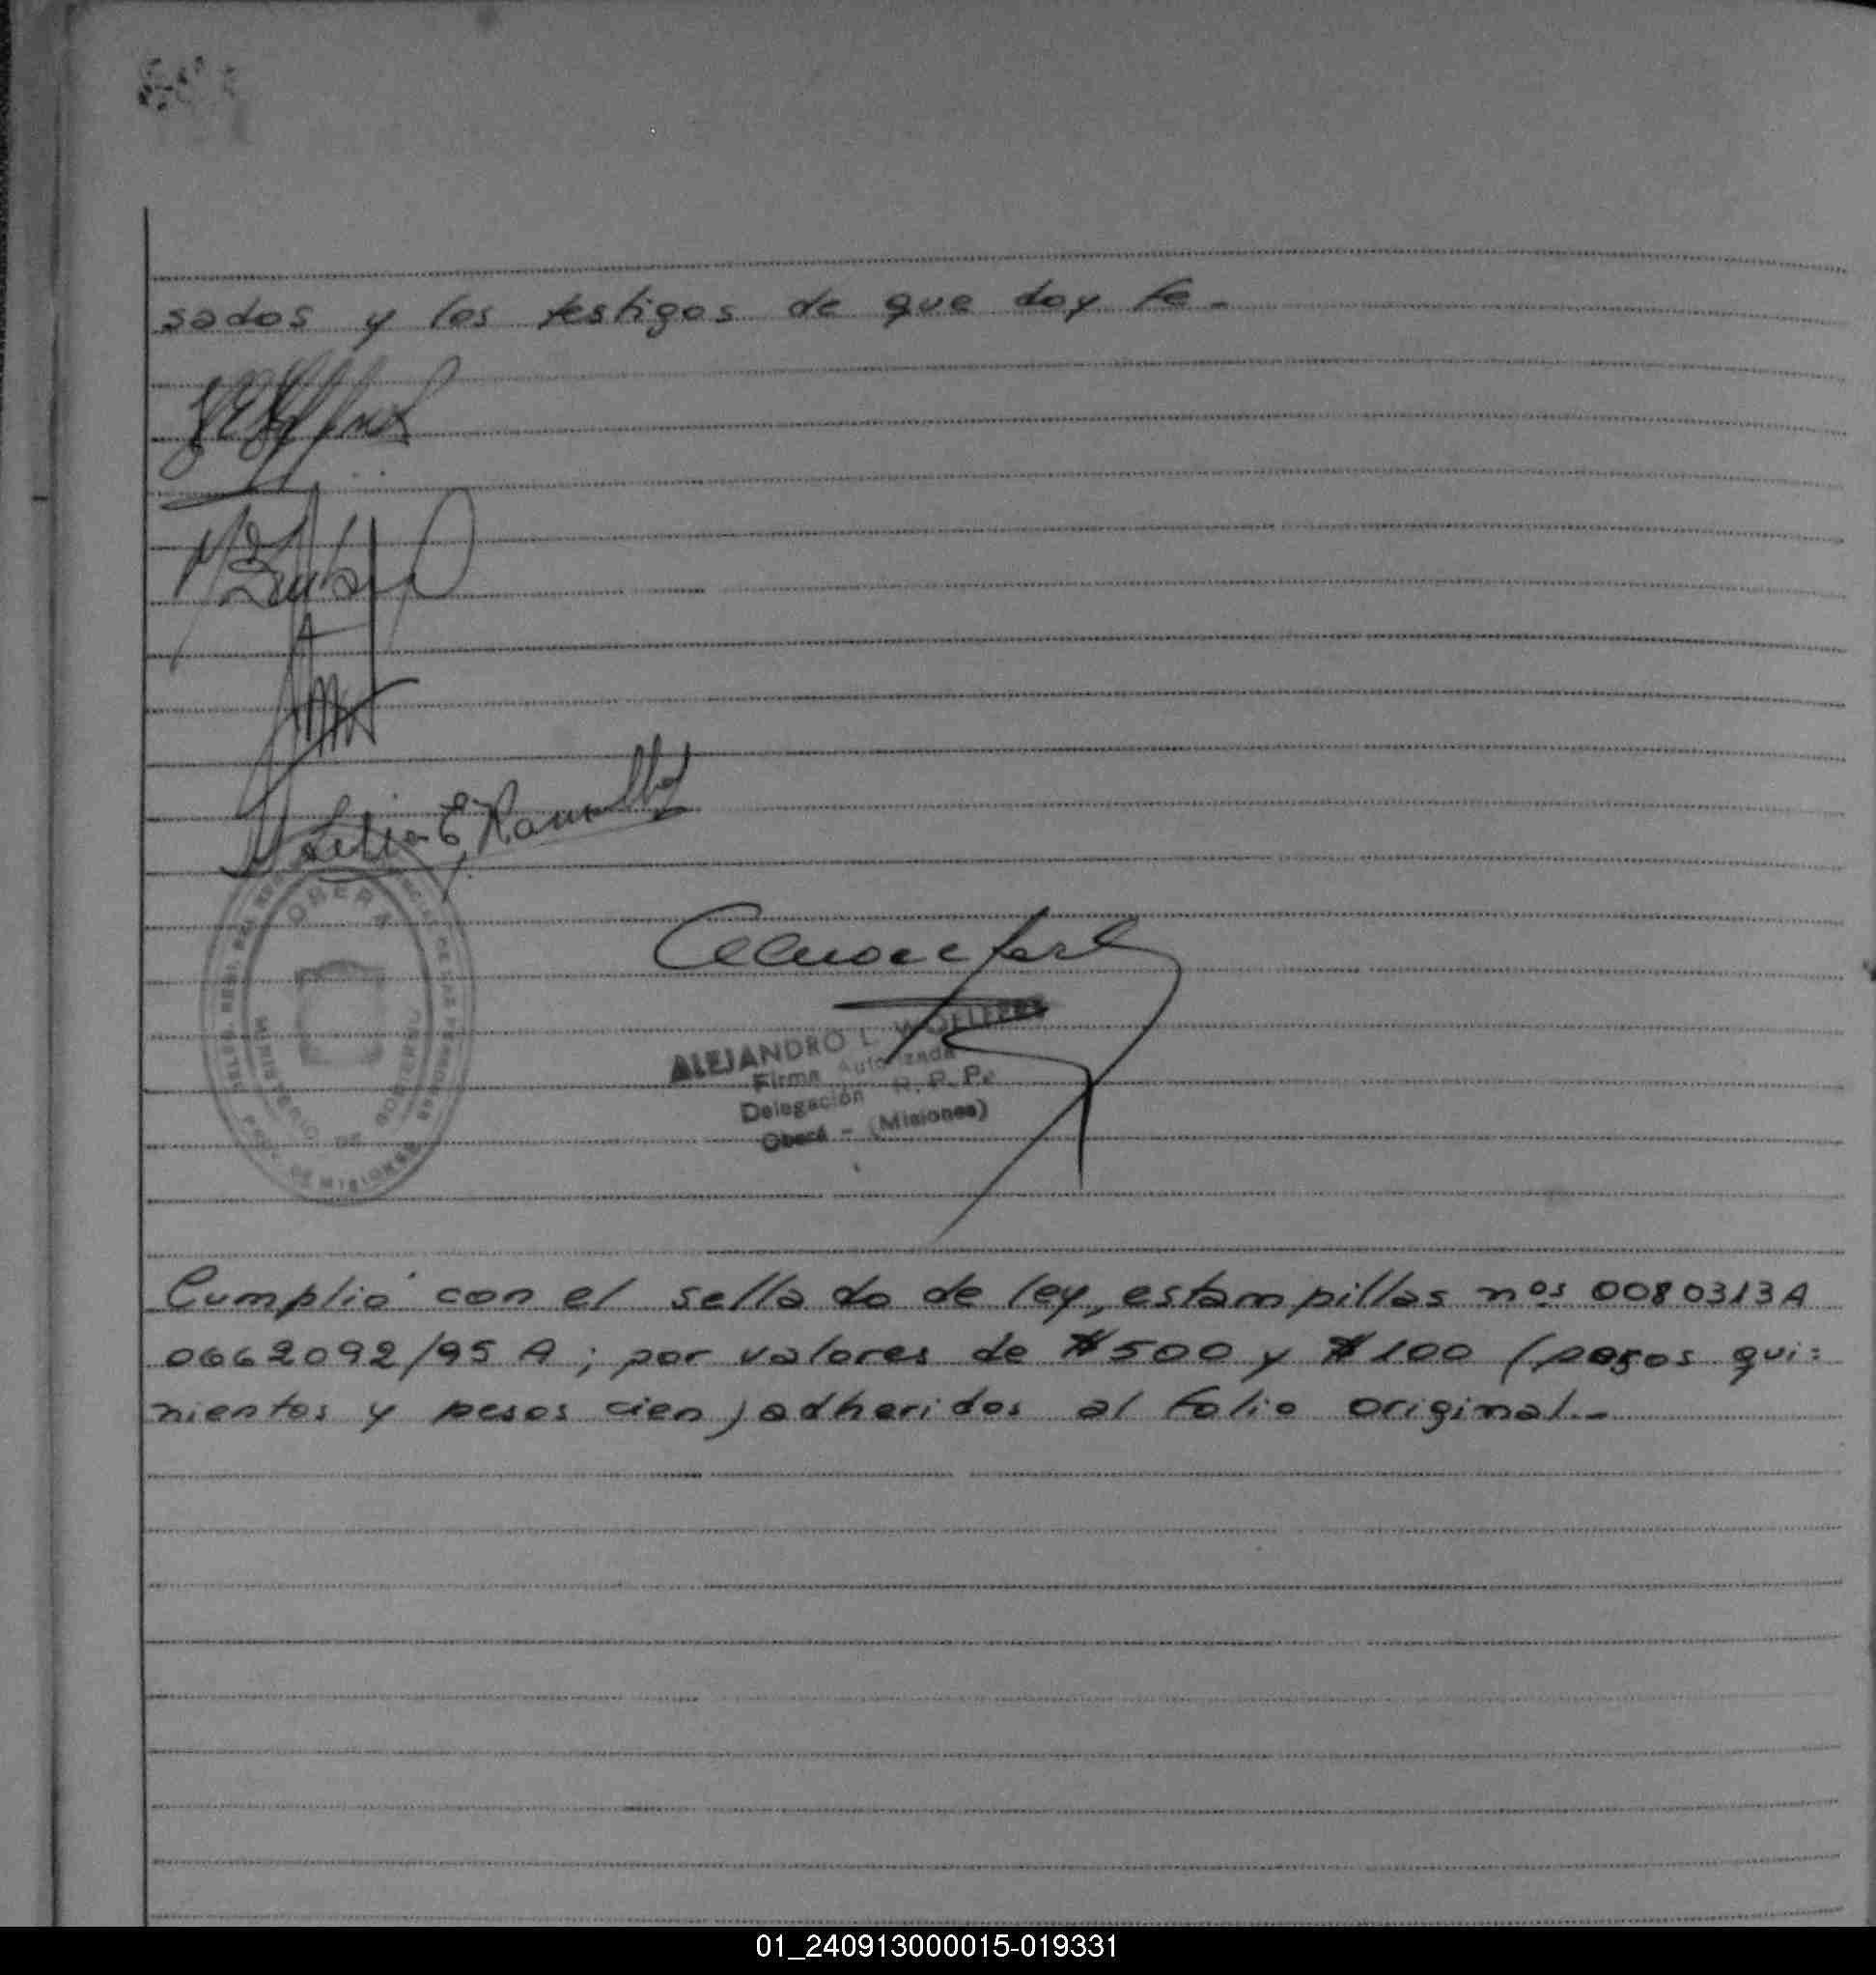 sados y los testigos de que doy fe.-
Lelia E. Ramallo
OBERA
MINISTERIO DE GOBIERNO
PROV. DE MISIONES
ALEJANDRO L.
Firma Autorizada
Delegación R. P. P.
Oberá - (Misiones)
Cumplió con el sellado de ley, estampillas nos 0080313A
0662092/95 A ; por valores de $500 y $100 (pesos qui=
nientos y pesos cien) adheridos al folio original.-
01_240913000015-019331